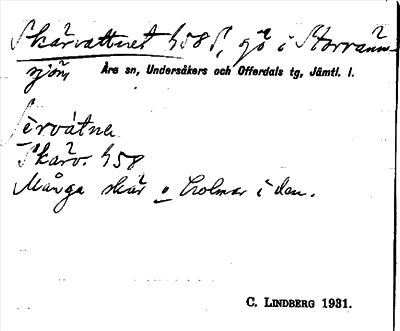 Skärvattnet 458 S, gö i Storränn-
sjön, Åre sn, Undersåkers och Offerdals tg, Jämtl. l.
Skärv. 458
Många skär o holmar i den.
C. LINDBERG 1931.